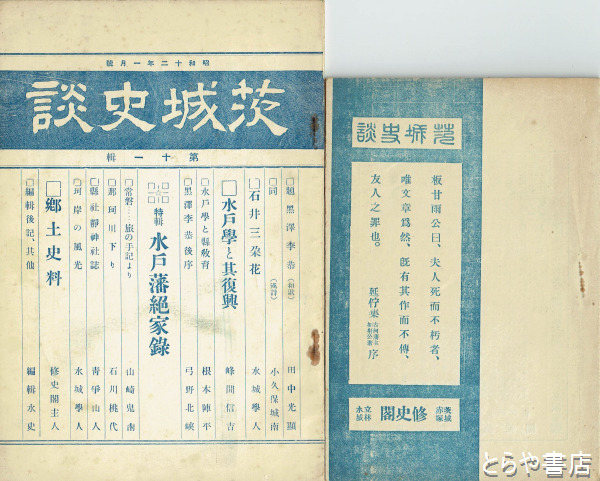 昭和十二年一月號
茨城史談
第十一輯
□題黒澤李恭(和歌) 田中光顯
□同(漢詩) 小久保城南
□石井三朶花 水城學人
□水戸學と其復興 峰間信吉
□水戸學と縣教育 根本陣平
□黒澤李恭後序 弓野北峽
特輯 水戸藩絕家錄
□常磐……旅の手記より 山崎鬼南
□那珂川下り 石川桃代
□縣社靜神社誌 青爭山人
□河岸の風光 水城學人
□鄕土史料 修史閣主人
□編輯後記、其他 編輯水史
茨城史談
板甘雨公曰、夫人死而不朽者、
唯文章爲然、旣有其作而不傳、
友人之罪也。
序
茨城
赤塚
修史閣
立林
水城
とらや書店